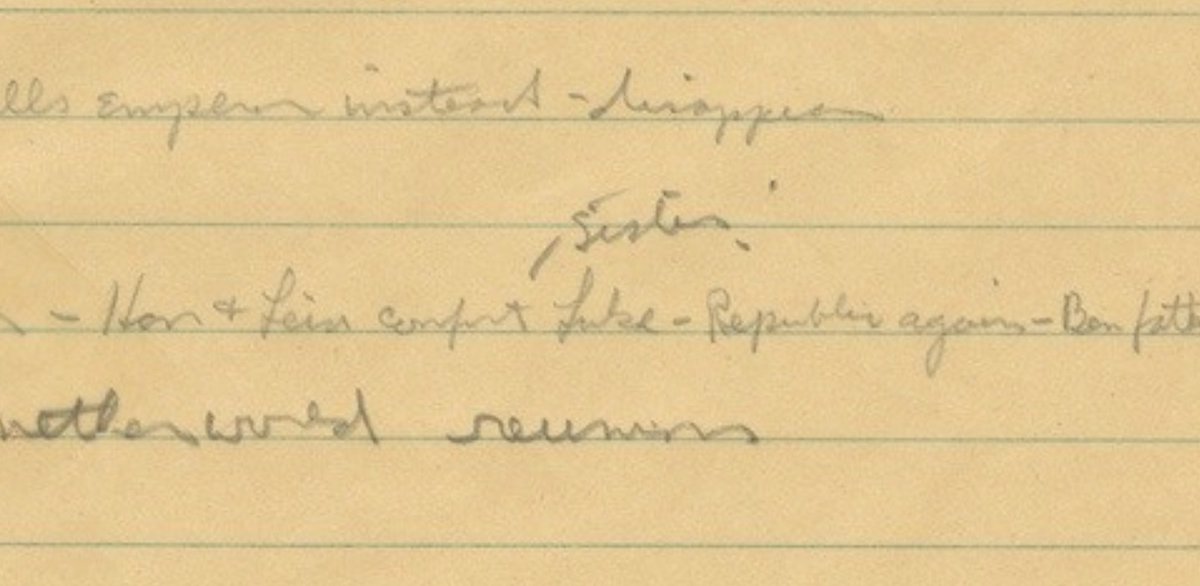 lls emperor instead - disappear
, Sister.
- Han & Leia comfort Luke - Republic again - Ben fathe
netherworld reunion